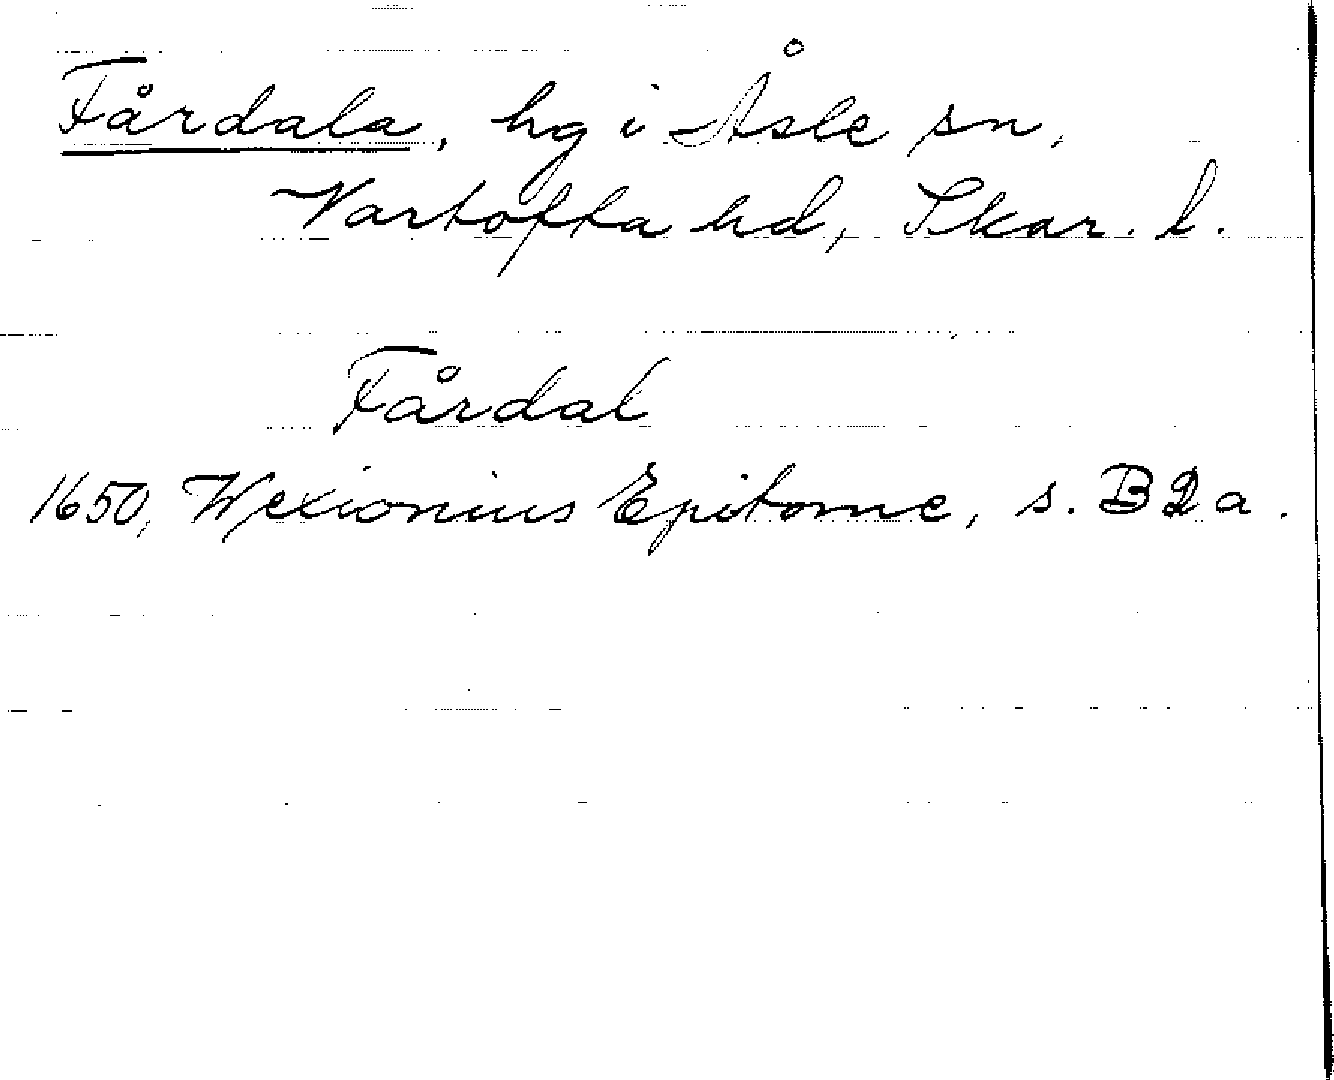 Fårdala, hg i Åsle sn,
Vartofta hd, Skar. l.
Fårdal
1650, Wexionius Epitome, s. B2a.